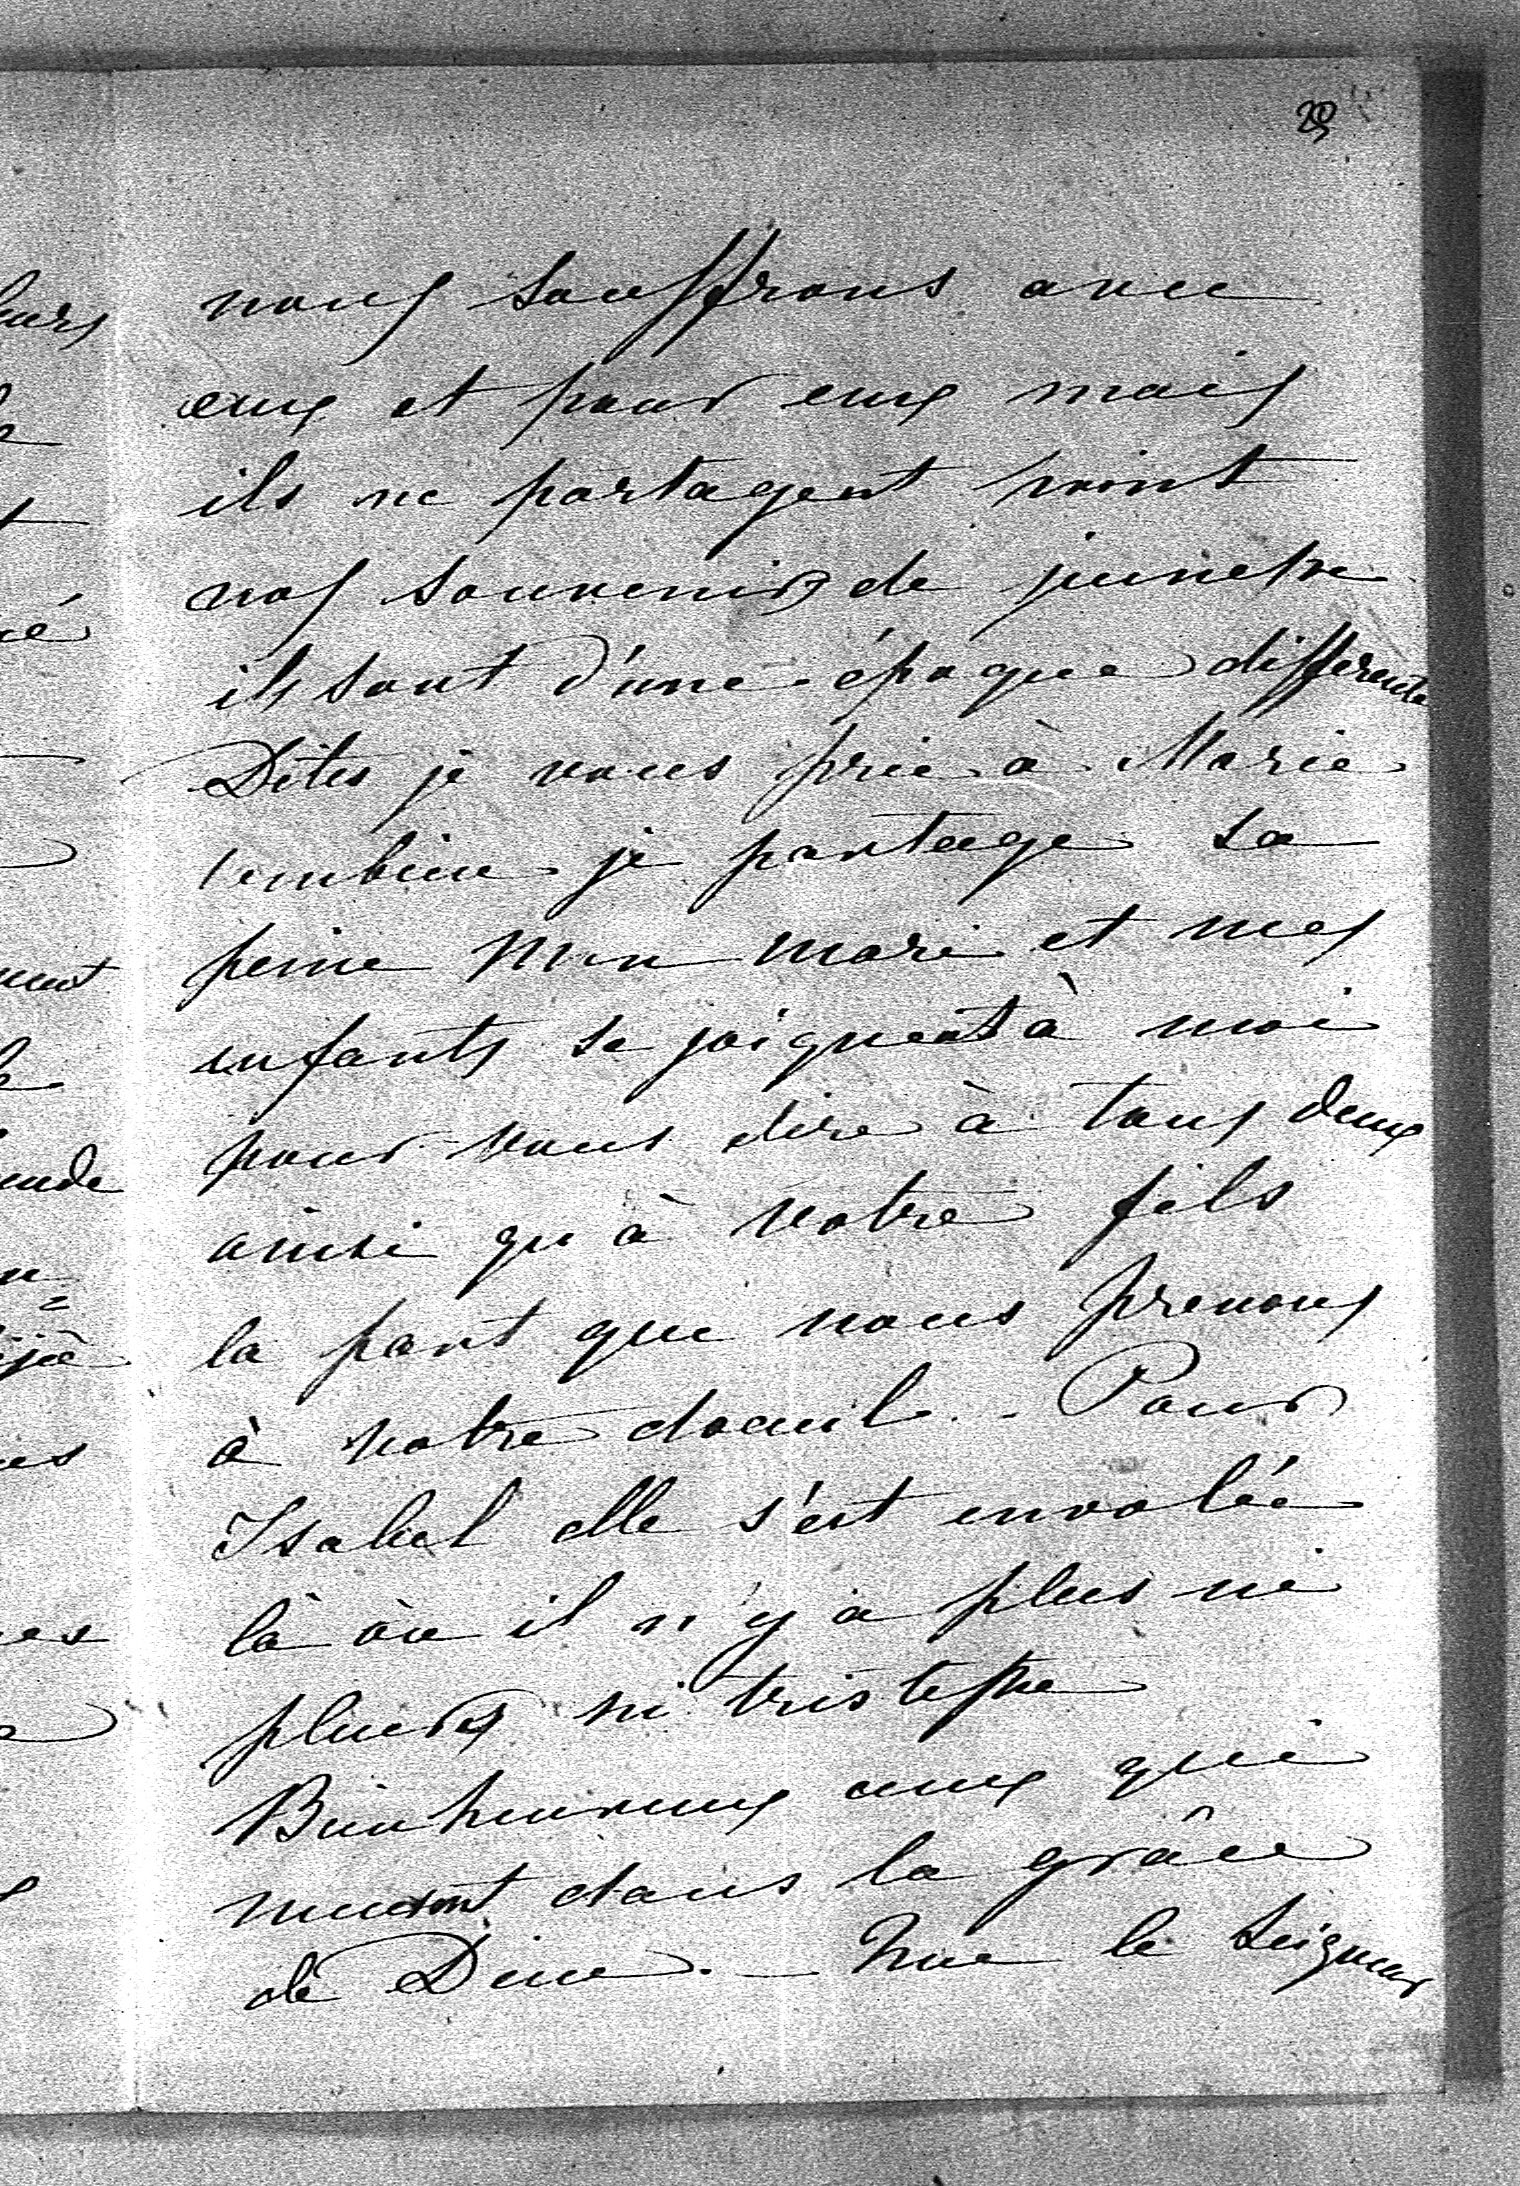 29
nous souffrons avec
eux et pour eux mais
ils ne partagent point
nos souvenirs de jeunesse
ils sont d'une époque differente
Dites je vous prie à Marie
combien je partage sa
peine Mon mari et mes
enfants se joignent à moi
pour vous dire à tous deux
ainsi qu'à votre fils
la part que nous prenons
à votre deuil. - Pour
Isabel elle s'est envolée
là où il n'y a plus ni
pleurs ni tristesse
Bienheureux ceux qui
meurent dans la grâce
de Dieu. - Que le Seigneur